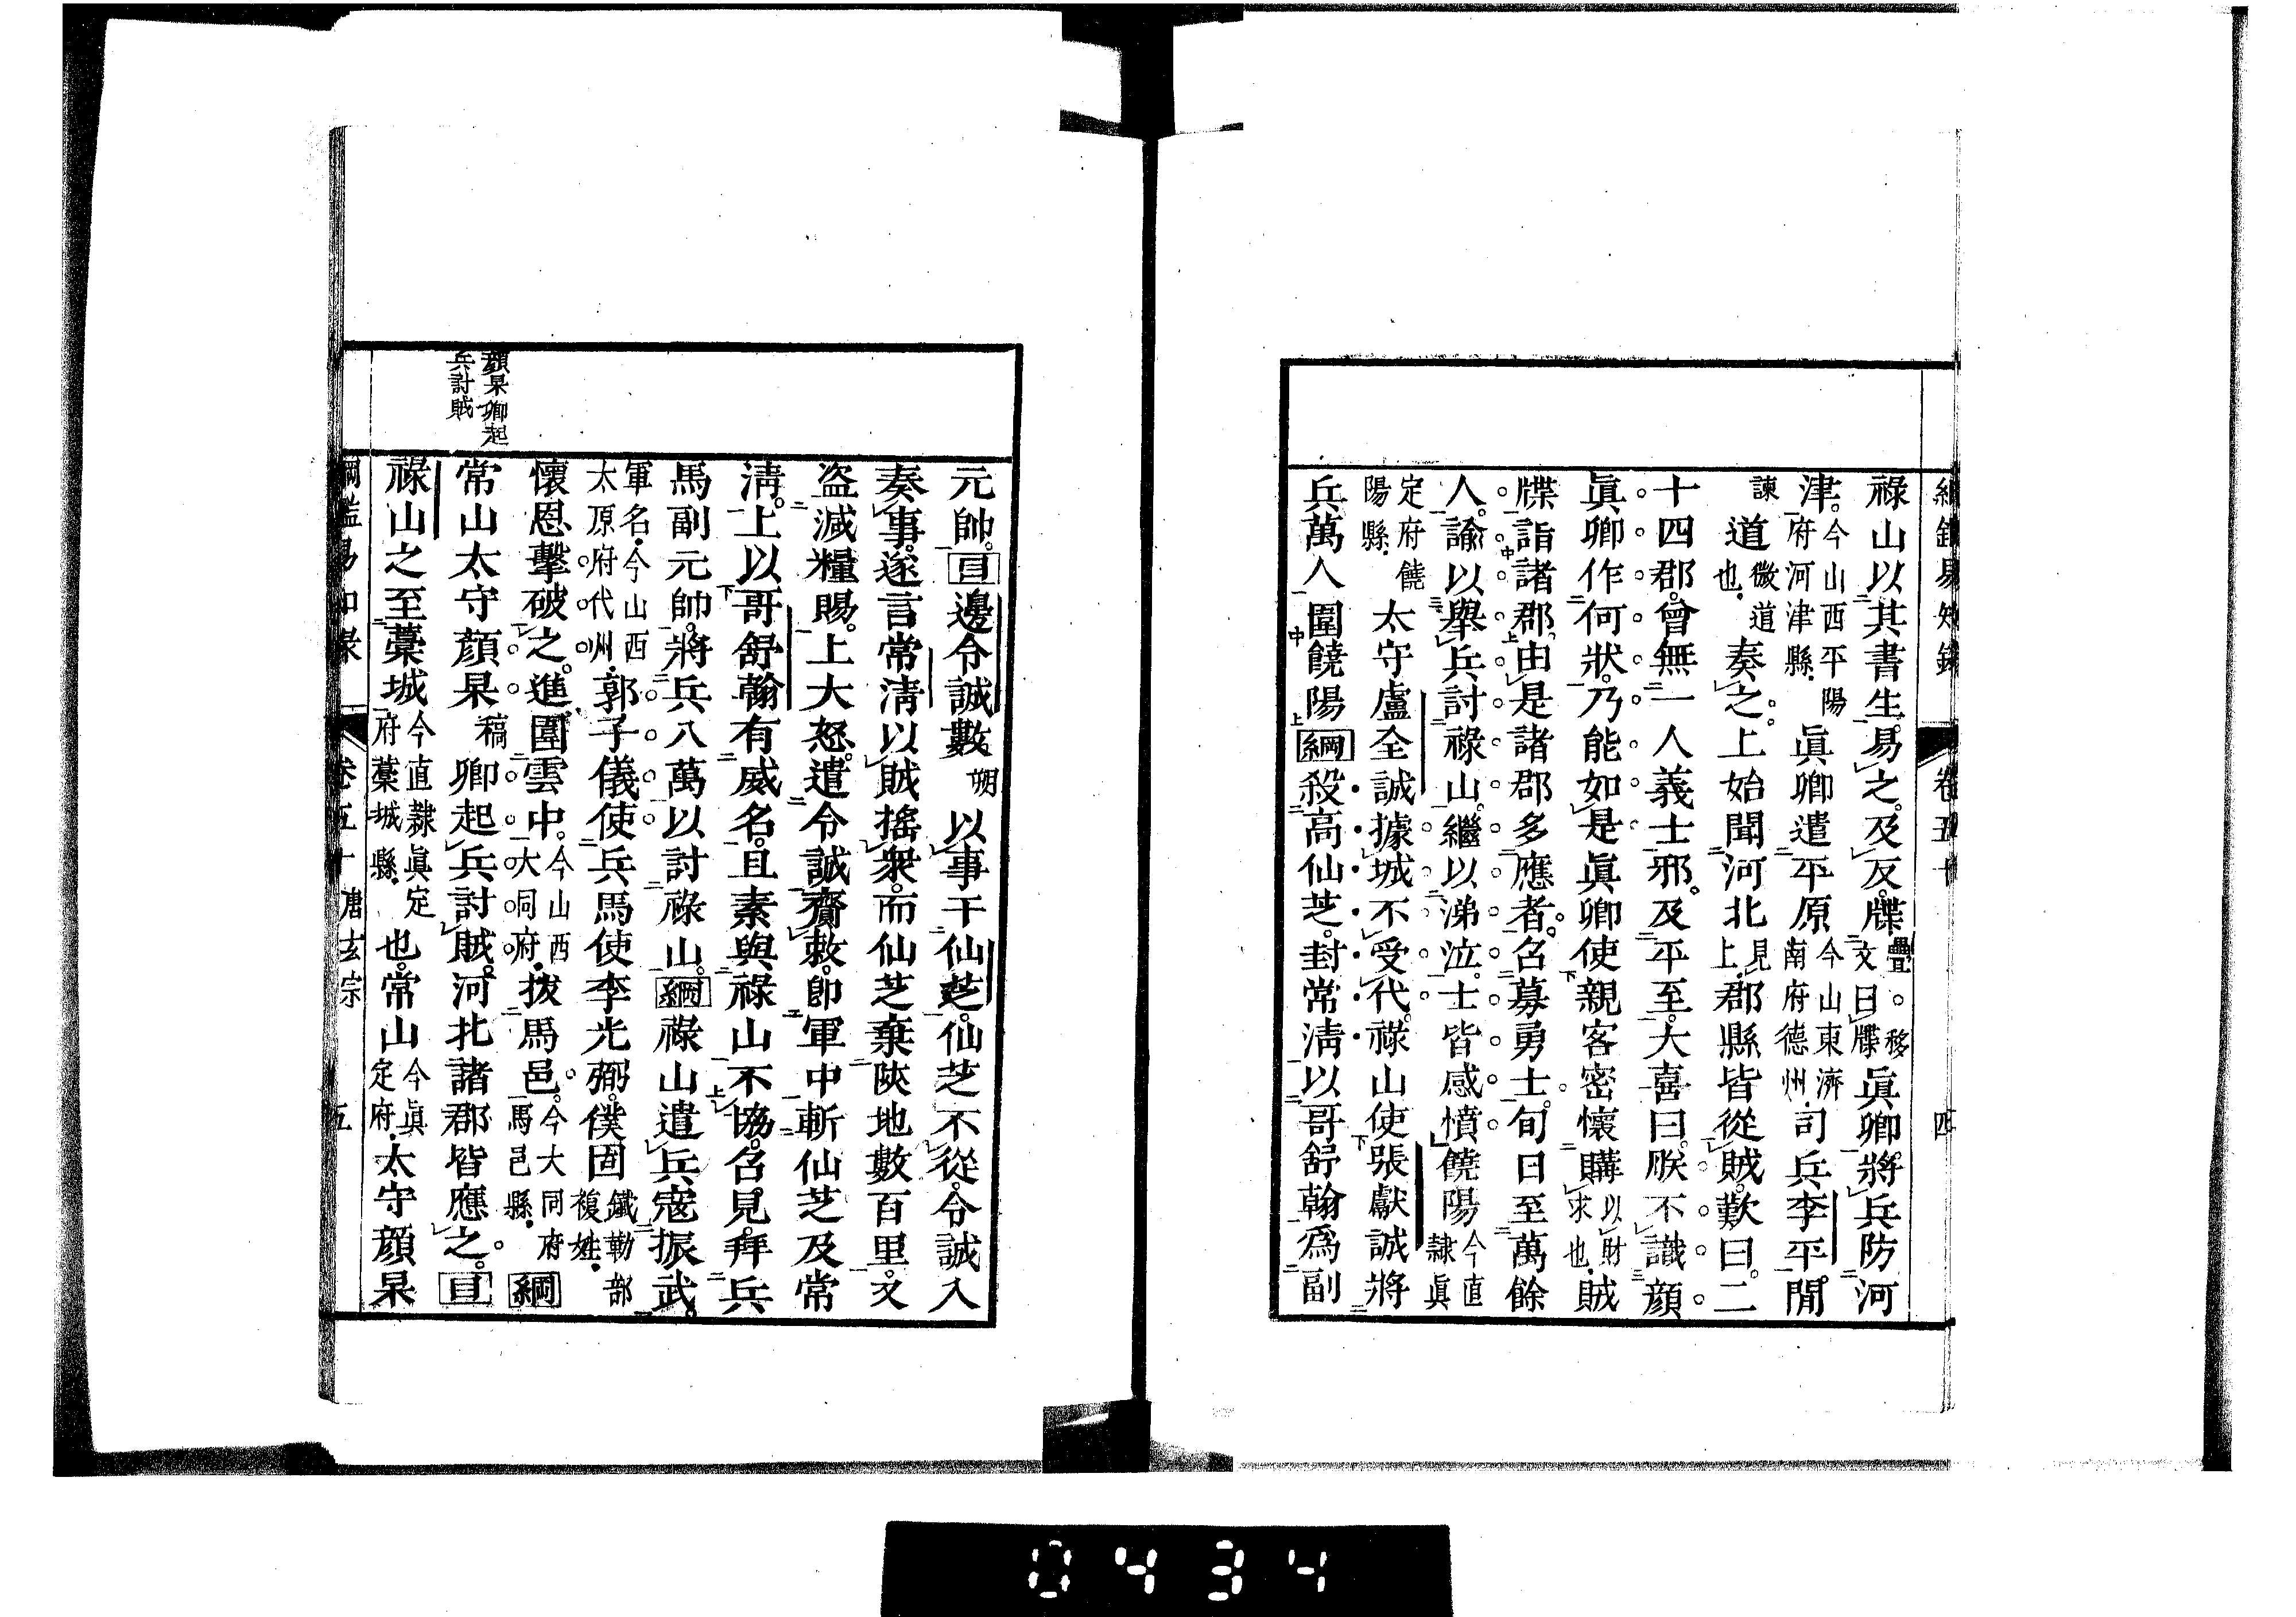 祿山以其書生易之及反牒疊○移文曰牒眞卿將兵防河
津今山西平陽府河津縣眞卿遣平原今山東濟南府德州司兵李平閒
諫道微道也奏之上始聞河北見上郡縣皆從賊歎曰二
十四郡曾無一人義士邪及平至大喜曰朕不識顔
眞卿作何狀乃能如是眞卿使親客密懷購以財求也賊
牒詣諸郡由是諸郡多應者召募勇士旬日至萬餘
人諭以舉兵討祿山繼以涕泣士皆感憤饒陽今直隸眞
定府饒陽縣太守盧全誠據城不受代祿山使張獻誠將
兵萬人圍饒陽綱殺高仙芝封常淸以哥舒翰爲副
卷五十
四
元帥目邊令誠數朔以事干仙芝仙芝不從令誠入
奏事遂言常淸以賊搖衆而仙芝棄陜地數百里又
盜減糧賜上大怒遣令誠齎敕卽軍中斬仙芝及常
淸上以哥舒翰有威名且素與祿山不協召見拜兵
馬副元帥將兵八萬以討祿山綱祿山遣兵寇振武
軍名今山西太原府代州郭子儀使兵馬使李光弼僕固鐵勒部複姓
懷恩擊破之進圍雲中今山西大同府拔馬邑今大同府馬邑縣綱
常山太守顔杲稿卿起兵討賊河北諸郡皆應之目
祿山之至藁城今直隸眞定府藁城縣也常山今眞定府太守顔杲
顔杲卿起
兵討賊
綱鑑易知錄
卷五十
唐玄宗
五
0434